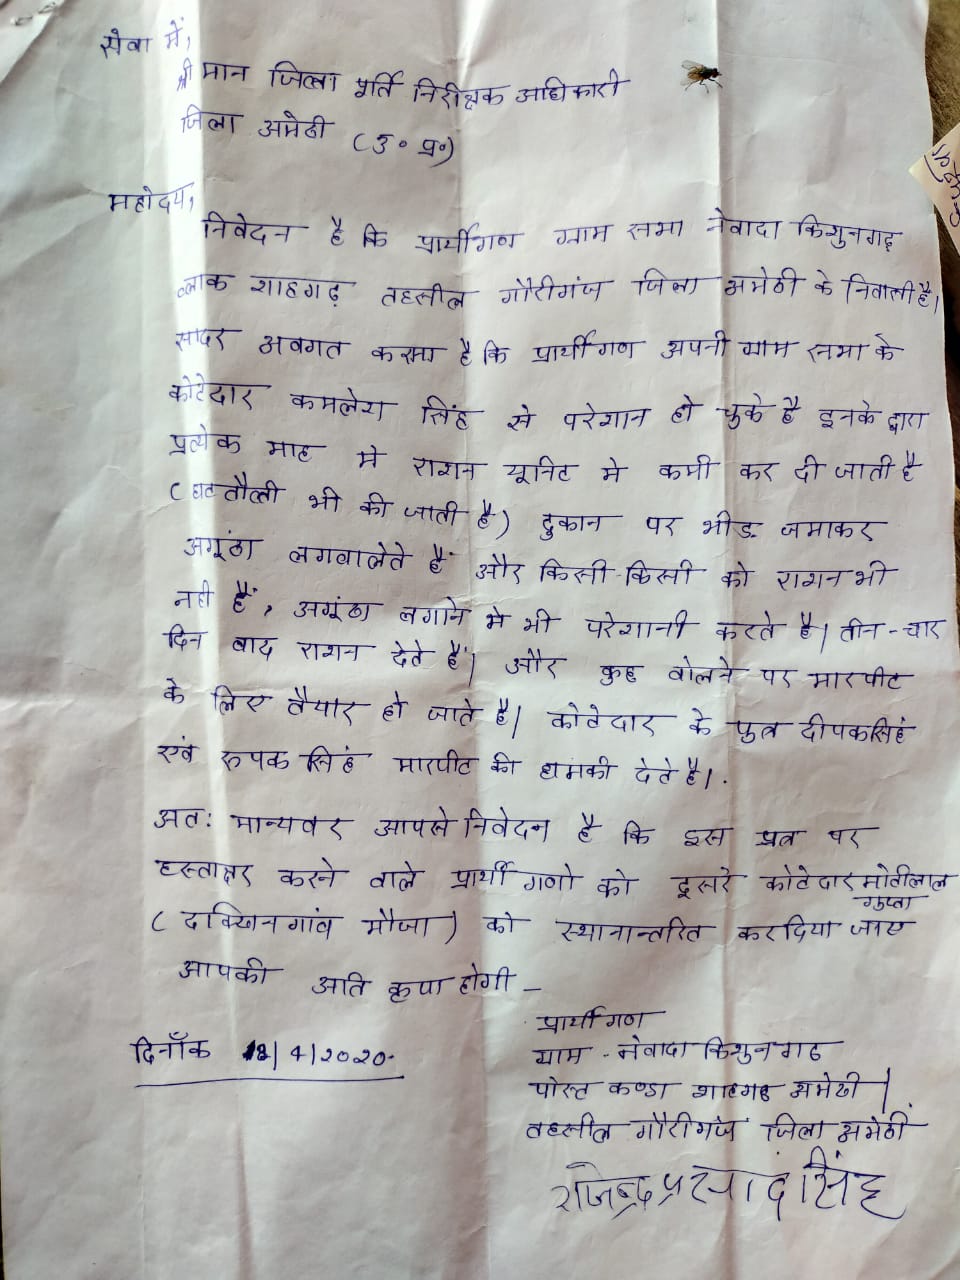 सेवा में,
श्री मान जिला पूर्ति निरीक्षक अधिकारी
जिला अमेठी (उ० प्र०)
महोदय,
निवेदन है कि प्रार्थीगण ग्राम सभा नेवादा किशुनगढ़
ब्लाक शाहगढ़ तहसील गौरीगंज जिला अमेठी के निवासी है।
सादर अवगत कराना है कि प्रार्थीगण अपनी ग्राम सभा के
कोटेदार कमलेश सिंह से परेशान हो चुके है इनके द्वारा
प्रत्येक माह मे राशन यूनिट मे कमी कर दी जाती है
(घटतौली भी की जाती है) दुकान पर भीड़ जमाकर
अगूंठा लगवालेते हैं और किसी-किसी को राशन भी
नही हैं, अगूंठा लगाने मे भी परेशानी करते है। तीन-चार
दिन बाद राशन देते हैं। और कुछ बोलने पर मारपीट
के लिए तैयार हो जाते है। कोटेदार के पुत्र दीपकसिंह
एवं रूपक सिंह मारपीट की धमकी देते है।
अतः मान्यवर आपसे निवेदन है कि इस पत्र पर
हस्ताक्षर करने वाले प्रार्थीगणो को दूसरे कोटेदार मोतीलाल
गुप्ता
(दक्खिनगांव मौजा) को स्थानान्तरित करदिया जाए
आपकी अति कृपा होगी -
प्रार्थीगण
दिनाँक 18/4/2020
ग्राम - नेवादा किशुनगढ
पोस्ट कण्डा शाहगढ अमेठी।
तहसील गौरीगंज जिला अमेठी
राजेन्द्र प्रसाद सिंह